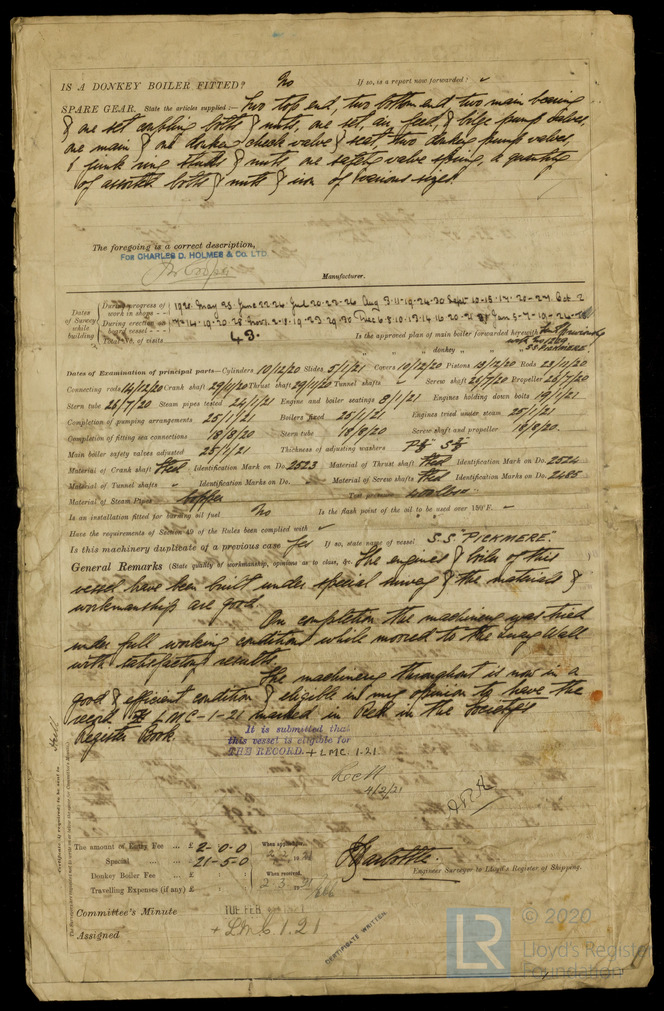 IS A DONKEY BOILER FITTED? No If so, is a report now forwarded? ✓
SPARE GEAR. State the articles supplied:— Two top end, two bottom end, two main bearing
& one set coupling bolts & nuts, one set, air, feed & bilge pump valves,
one main & one donkey check valve & seat, two donkey pump valves,
junk ring studs & nuts one safety valve spring, a quantity
of assorted bolts & nuts & iron of various sizes.
The foregoing is a correct description,
FOR CHARLES D. HOLMES & CO. LTD.
Manufacturer.
Dates of Survey while building
During progress of work in shops -- 1920. May 25. June 22-24. Jul 20-23-26 Aug 3-11-19-24-30 Sept 10-15-17-28-29 Oct 2
During erection on board vessel --- 7-14-19-20-28 Nov 2-8-19-23-29-30 Dec 6-8-10-13-14-16 Jan 5-7-19-24-
Total No. of visits 43.
Is the approved plan of main boiler forwarded herewith Sent previously
" " " donkey " " " S.S. PICKMERE
Dates of Examination of principal parts—Cylinders 10/12/20 Slides 5/1/21 Covers 10/12/20 Pistons 13/12/20 Rods 23/11/20
Connecting rods 14/12/20 Crank shaft 29/11/20 Thrust shaft 29/11/20 Tunnel shafts ✓ Screw shaft 26/7/20 Propeller 26/7/20
Stern tube 26/7/20 Steam pipes tested 24/1/21 Engine and boiler seatings 8/1/21 Engines holding down bolts 19/1/21
Completion of pumping arrangements 25/1/21 Boilers fixed 25/1/21 Engines tried under steam 25/1/21
Completion of fitting sea connections 18/8/20 Stern tube 18/8/20 Screw shaft and propeller 18/8/20.
Main boiler safety valves adjusted 25/1/21 Thickness of adjusting washers
Material of Crank shaft Steel Identification Mark on Do. 2523 Material of Thrust shaft Steel Identification Mark on Do. 2524
Material of Tunnel shafts ✓ Identification Marks on Do. Material of Screw shafts Steel Identification Marks on Do. 2485
Material of Steam Pipes Copper Test pressure
Is an installation fitted for burning oil fuel No Is the flash point of the oil to be used over 150°F. ✓
Have the requirements of Section 49 of the Rules been complied with ✓
Is this machinery duplicate of a previous case Yes If so, state name of vessel S.S. "PICKMERE".
General Remarks (State quality of workmanship, opinions as to class, &c. The engines & boiler of this
vessel have been built under special survey & the materials &
workmanship are good.
On completion the machinery was tried
under full working conditions while moored to the Quay Wall
with satisfactory results.
The machinery throughout is now in a
good & efficient condition & eligible in my opinion to have the
record + LMC-1-21 marked in Red in the Society's
Register Book
It is submitted that
this vessel is eligible for
THE RECORD. + LMC 1.21
4/2/21
Hull
The amount of Entry Fee ... £ 2-0-0 When applied for,
Special ... £ 21-5-0
Donkey Boiler Fee ... £ : : When received,
Travelling Expenses (if any) £ : : 2.3.21
Engineer Surveyor to Lloyd's Register of Shipping.
Committee's Minute TUE FEB
Assigned + LMC 1.21
CERTIFICATE WRITTEN.
LR
© 2020
Lloyd's Register
Foundation